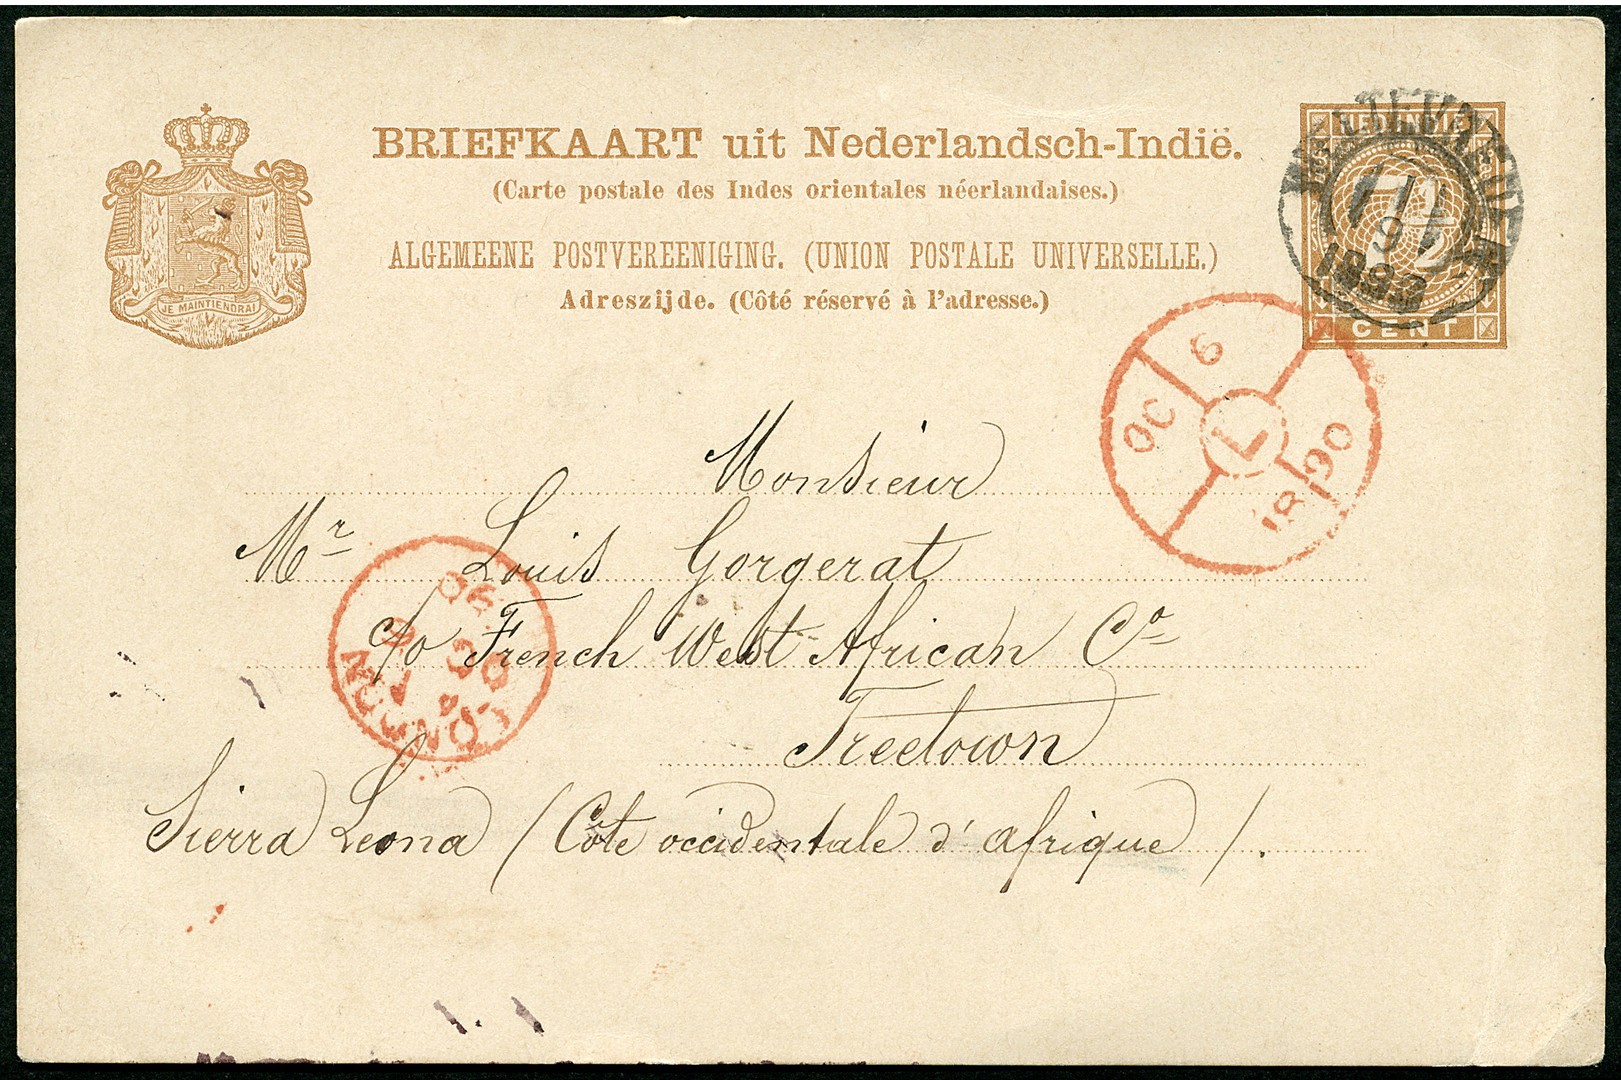 BRIEFKAART uit Nederlandsch-Indië.
(Carte postale des Indes orientales néerlandaises.)
ALGEMEENE POSTVEREENIGING. (UNION POSTALE UNIVERSELLE.)
Adreszijde. (Côté réservé à l'adresse.)
JE MAINTIENDRAI
NED. INDIE
7½
CENT
OC 6
L
1890
Monsieur
Mr Louis Gorgerat
c/o French West African Co
Freetown
Sierra Leona (Côte occidentale d'afrique).
LONDON